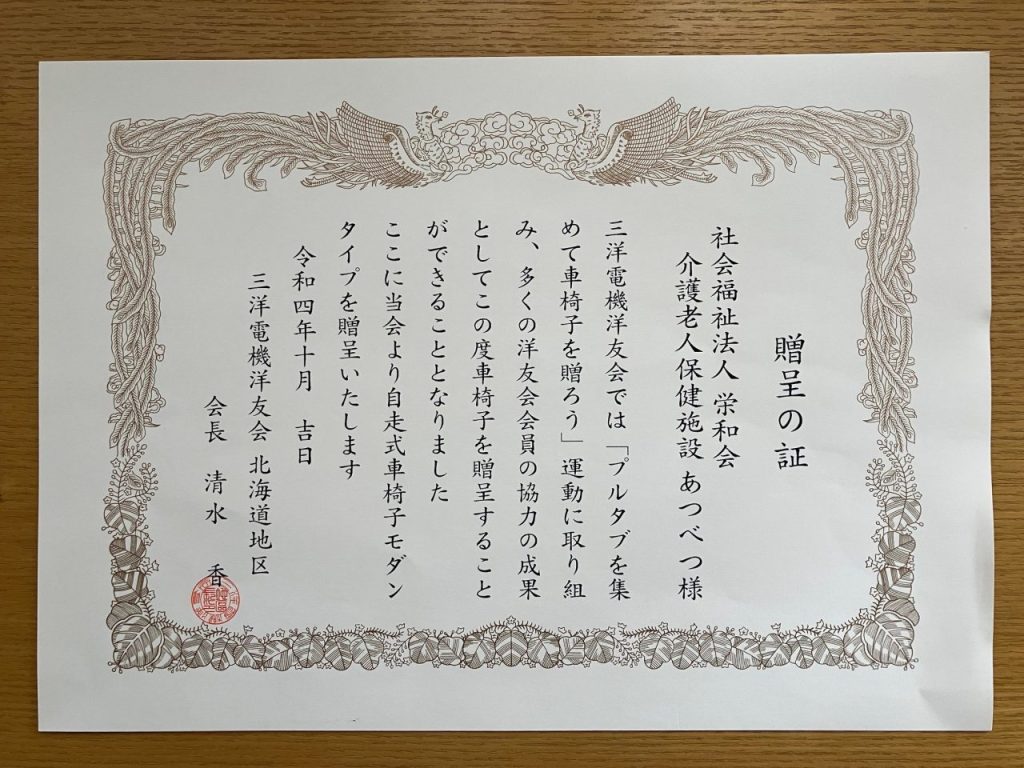 贈呈の証
社会福祉法人 栄和会
介護老人保健施設 あつべつ様
三洋電機洋友会では「プルタブを集
めて車椅子を贈ろう」運動に取り組
み、多くの洋友会会員の協力の成果
としてこの度車椅子を贈呈すること
ができることとなりました
ここに当会より自走式車椅子モダン
タイプを贈呈いたします
令和四年十月 吉日
三洋電機洋友会 北海道地区
会長 清水 香